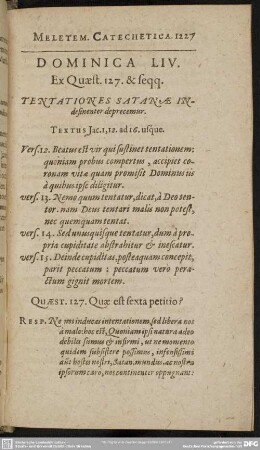 MELETEM. CATECHETICA. 1227
DOMINICA LIV.
Ex Quæst. 127. & seqq.
TENTATIONES SATANÆ IN-
desinenter deprecemur.
TEXTUS Jac. 1, 12. ad 16. usque.
Vers. 12. Beatus est vir qui sustinet tentationem:
quoniam probus compertus, accipiet co-
ronam vitæ quam promisit Dominus iis
à quibus ipse diligitur.
vers. 13. Nemo quum tentatur, dicat, à Deo ten-
tor. nam Deus tentari malis non potest,
nec quemquam tentat.
vers. 14. Sed unusquisque tentatur, dum à pro-
pria cupiditate abstrahitur & inescatur.
vers. 15. Deinde cupiditas, postea quam concepit,
parit peccatum: peccatum vero pera-
ctum gignit mortem.
QUÆST. 127. Quæ est sexta petitio?
RESP. Ne nos inducas in tentationem, sed libera nos
à malo: hoc est, Quoniam ipsi natura adeo
debiles sumus & infirmi, ut ne momento
quidem subsistere possimus, infensissimi
autē hostes nostri, Satan. mundus. ac nostra
ipsorum caro, nos continenter oppugnant: